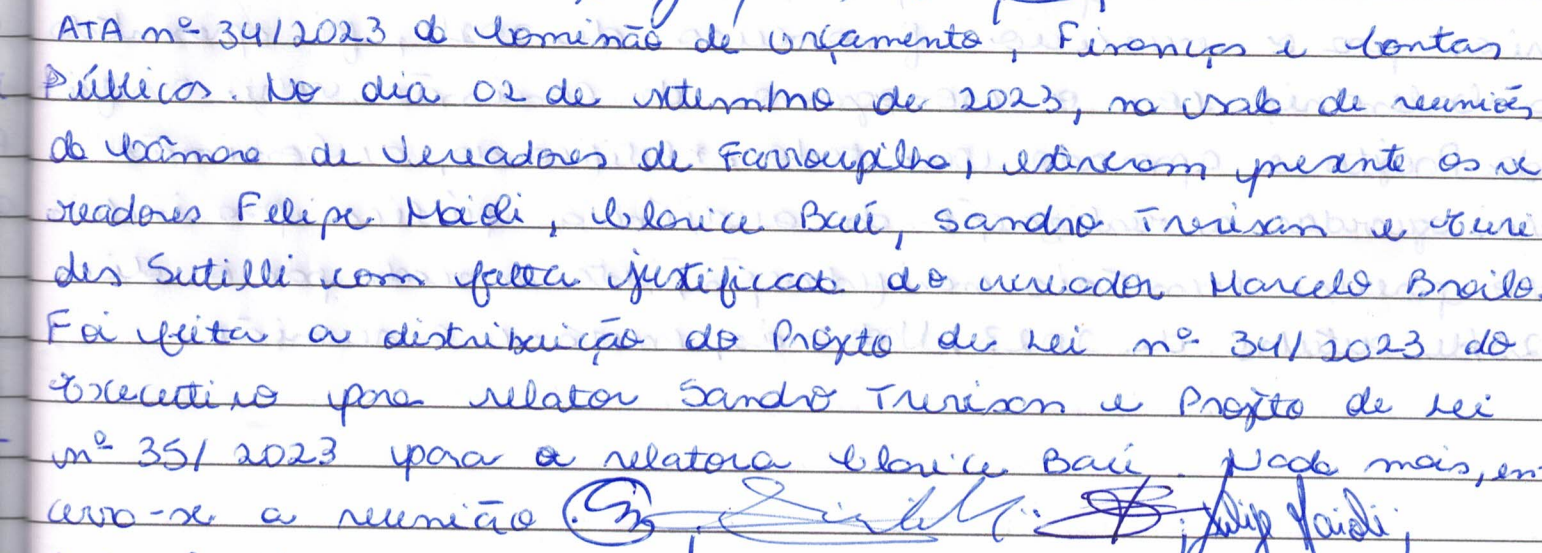 ATA nº 34/2023 da Comissão de Orçamento, Finanças e Contas
Públicas. No dia 02 de setembro de 2023, na sala de reuniões
da Câmara de Vereadores de Farroupilha, estiveram presente os ve
readores Felipe Maioli, Clarice Baú, Sandro Trevisan e Euri
des Sutilli com falta justificada do vereador Marcelo Broilo.
Foi feita a distribuição do Projeto de Lei nº 34/2023 do
Executivo para relator Sandro Trevisan e Projeto de Lei
nº 35/2023 para a relatora Clarice Baú. Nada mais, en
cerro-se a reunião Felipe Maioli,